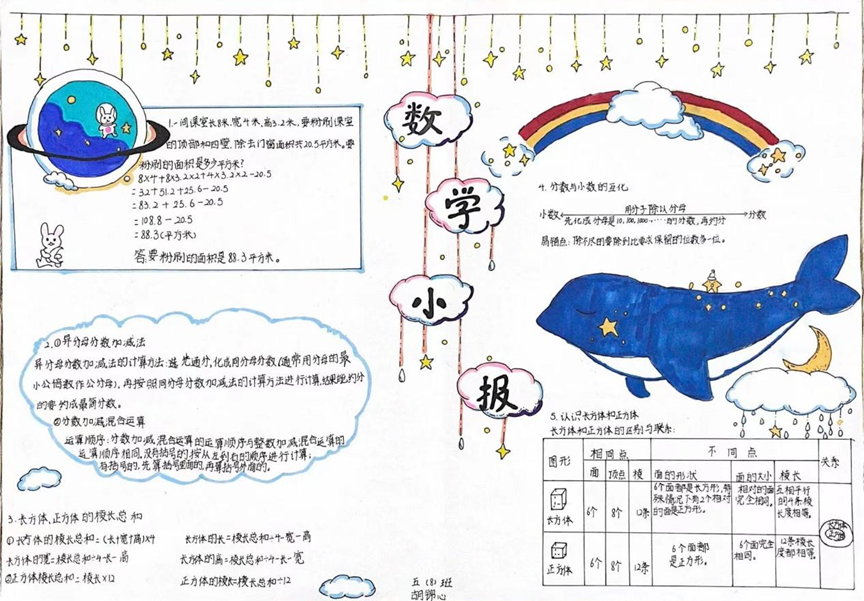 数
学
小
报
1.一间课室长8米,宽4米,高3.2米,要粉刷课室
的顶部和四壁,除去门窗面积共20.5平方米。要
粉刷的面积是多少平方米?
8×4+8×3.2×2+4×3.2×2-20.5
=32+51.2+25.6-20.5
=83.2+25.6-20.5
=108.8-20.5
=88.3(平方米)
答:要粉刷的面积是88.3平方米。
2.①异分母分数加、减法
异分母分数加、减法的计算方法:先通分,化成同分母分数(通常用分母的最
小公倍数作公分母),再按照同分母分数加、减法的计算方法进行计算,结果能约分
的要约成最简分数。
②分数加、减混合运算
运算顺序:分数加、减混合运算的运算顺序与整数加、减混合运算的
运算顺序相同,没有括号的,按从左到右的顺序进行计算;
有括号的,先算括号里面的,再算括号外面的。
3.长方体、正方体的棱长总和
①长方体的棱长总和=(长+宽+高)×4
长方体的长=棱长总和÷4-宽-高
长方体的宽=棱长总和÷4-长-高
长方体的高=棱长总和÷4-长-宽
②正方体棱长总和=棱长×12
正方体的棱长=棱长总和÷12
4.分数与小数的互化
用分子除以分母
小数
分数
先化成分母是10,100,1000……的分数,再约分
易错点:除不尽的要除到比要求保留的位数多一位。
5.认识长方体和正方体
长方体和正方体的区别与联系:
图形
相同点
不同点
关系
面
顶点
棱
面的形状
面的大小
棱长
长方体
6个
8个
12条
6个面都是长方形,特
殊情况下有2个相对
的面是正方形。
相对的面
完全相同。
互相平行
的4条棱
长度相等。
正方体
6个
8个
12条
6个面都
是正方形。
6个面完全
相同。
12条棱长
度都相等。
长方体
正方体
五(8)班